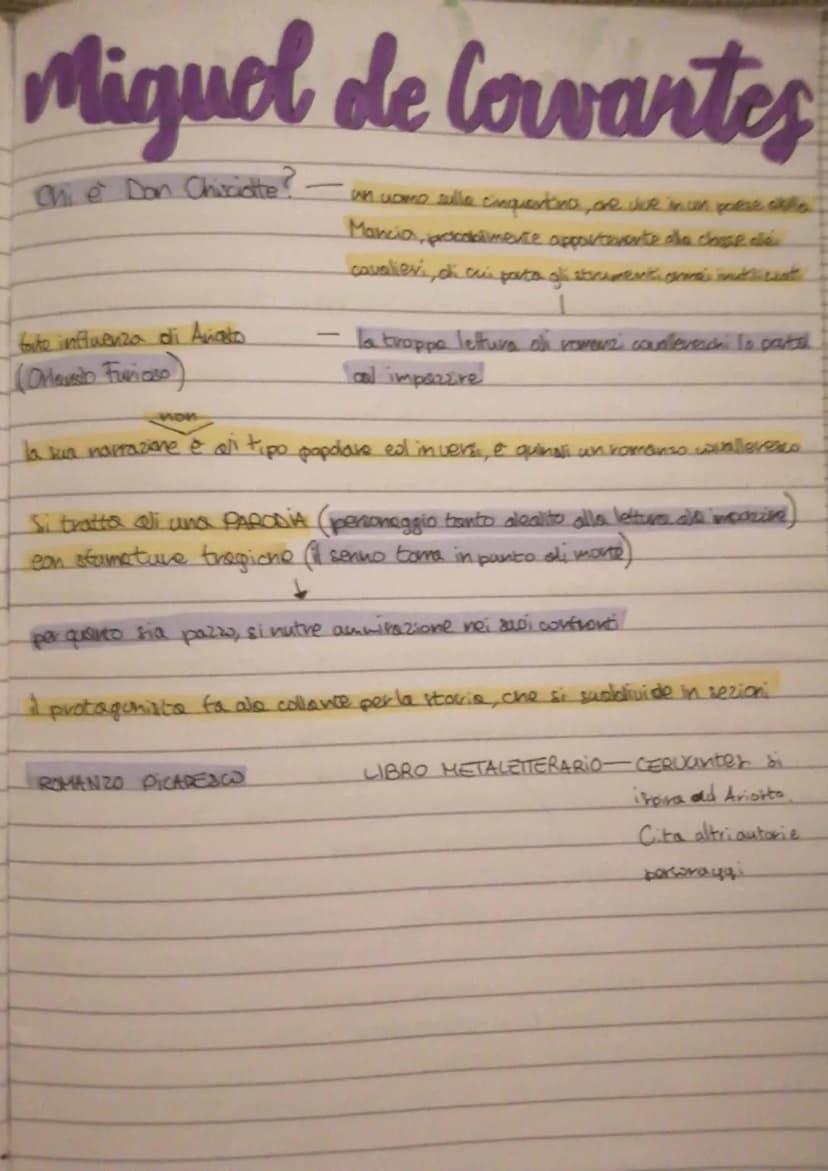 Miguel de Cervantes
Chi è Don Chisciotte? — un uomo sulla cinquantina, che vive in un paese della
Mancia, probabilmente appartenente alla classe dei
cavalieri, di cui porta gli strumenti ormai inutilizzati
forte influenza di Ariosto — la troppa lettura di romanzi cavallereschi lo porta
(Orlando Furioso) ad impazzire
non
la sua narrazione è di tipo popolare ed in versi, è quindi un romanzo cavalleresco
Si tratta di una PARODIA (personaggio tanto dedito alla lettura da impazzire)
con sfumature tragiche (il senno torna in punto di morte)
per quanto sia pazzo, si nutre ammirazione nei suoi confronti
il protagonista fa da collante per la storia, che si suddivide in sezioni
ROMANZO PICARESCO LIBRO METALETTERARIO — CERVANTES si
ispira ad Ariosto.
Cita altri autori e
personaggi